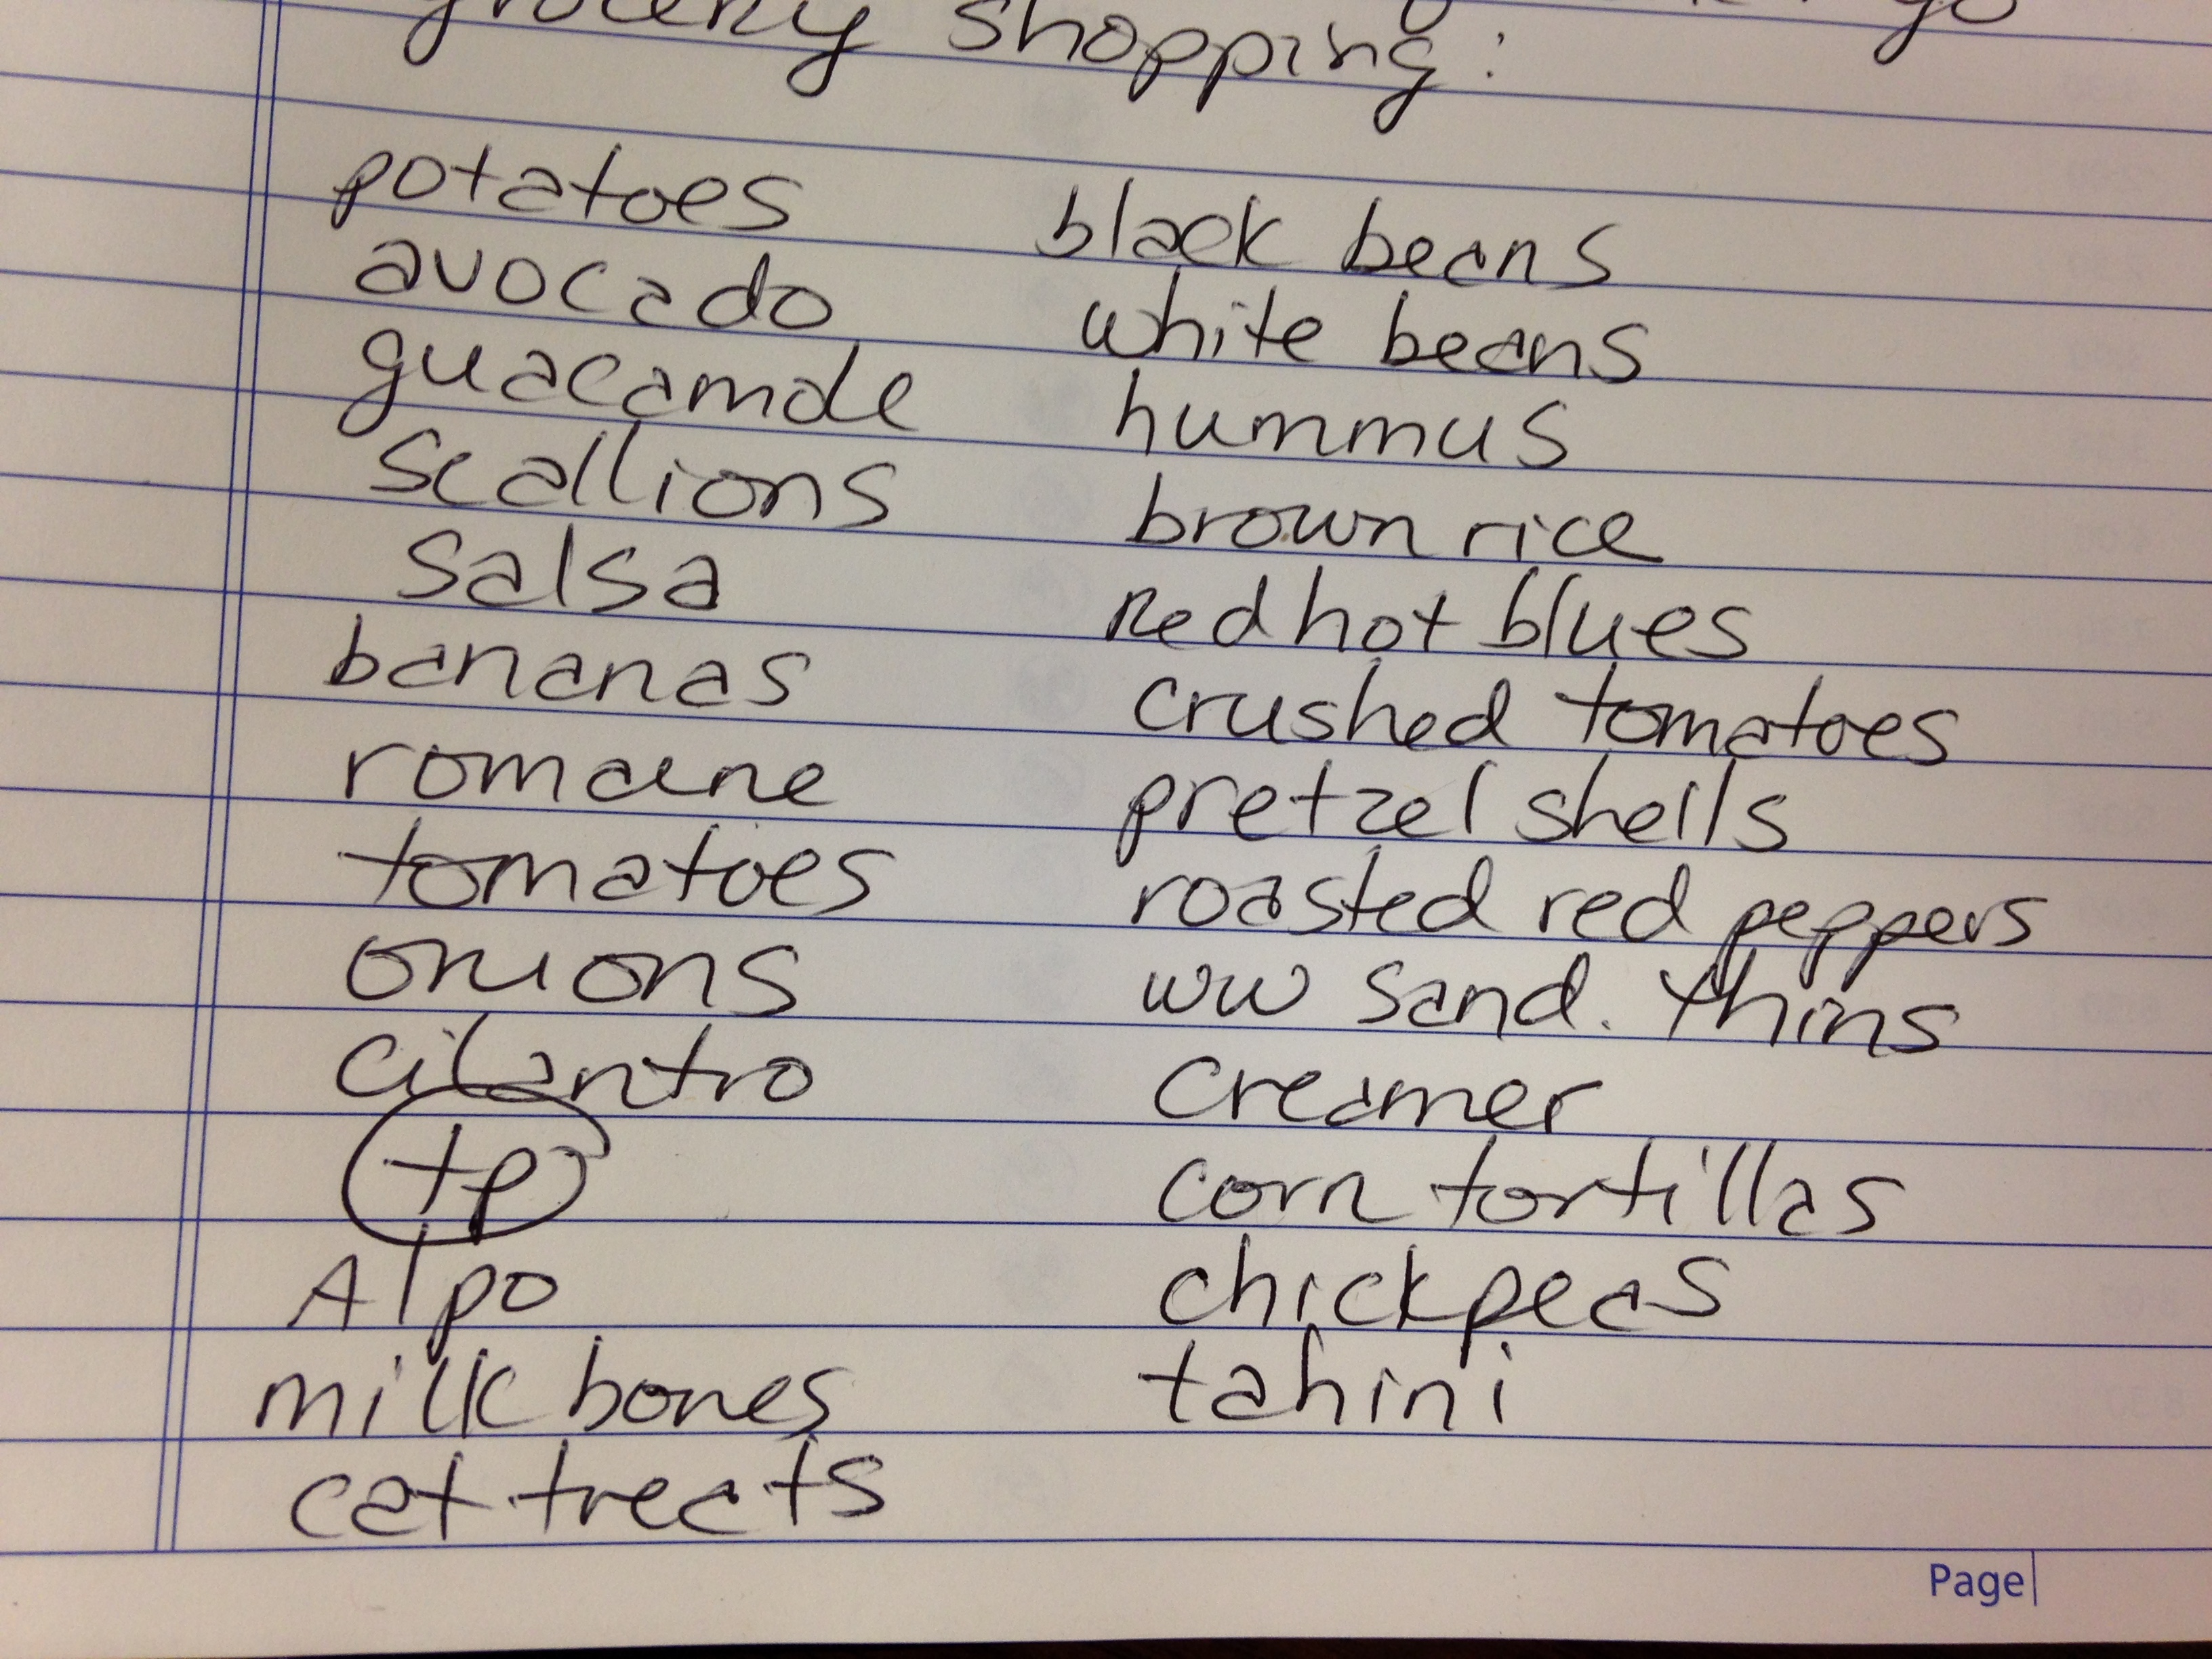 grocery shopping:
potatoes
avocado
guacamole
scallions
salsa
bananas
romaine
tomatoes
onions
cilantro
tp
Alpo
milk bones
cat treats
black beans
white beans
hummus
brown rice
Red hot blues
crushed tomatoes
pretzel shells
roasted red peppers
ww sand. thins
creamer
corn tortillas
chickpeas
tahini
Page